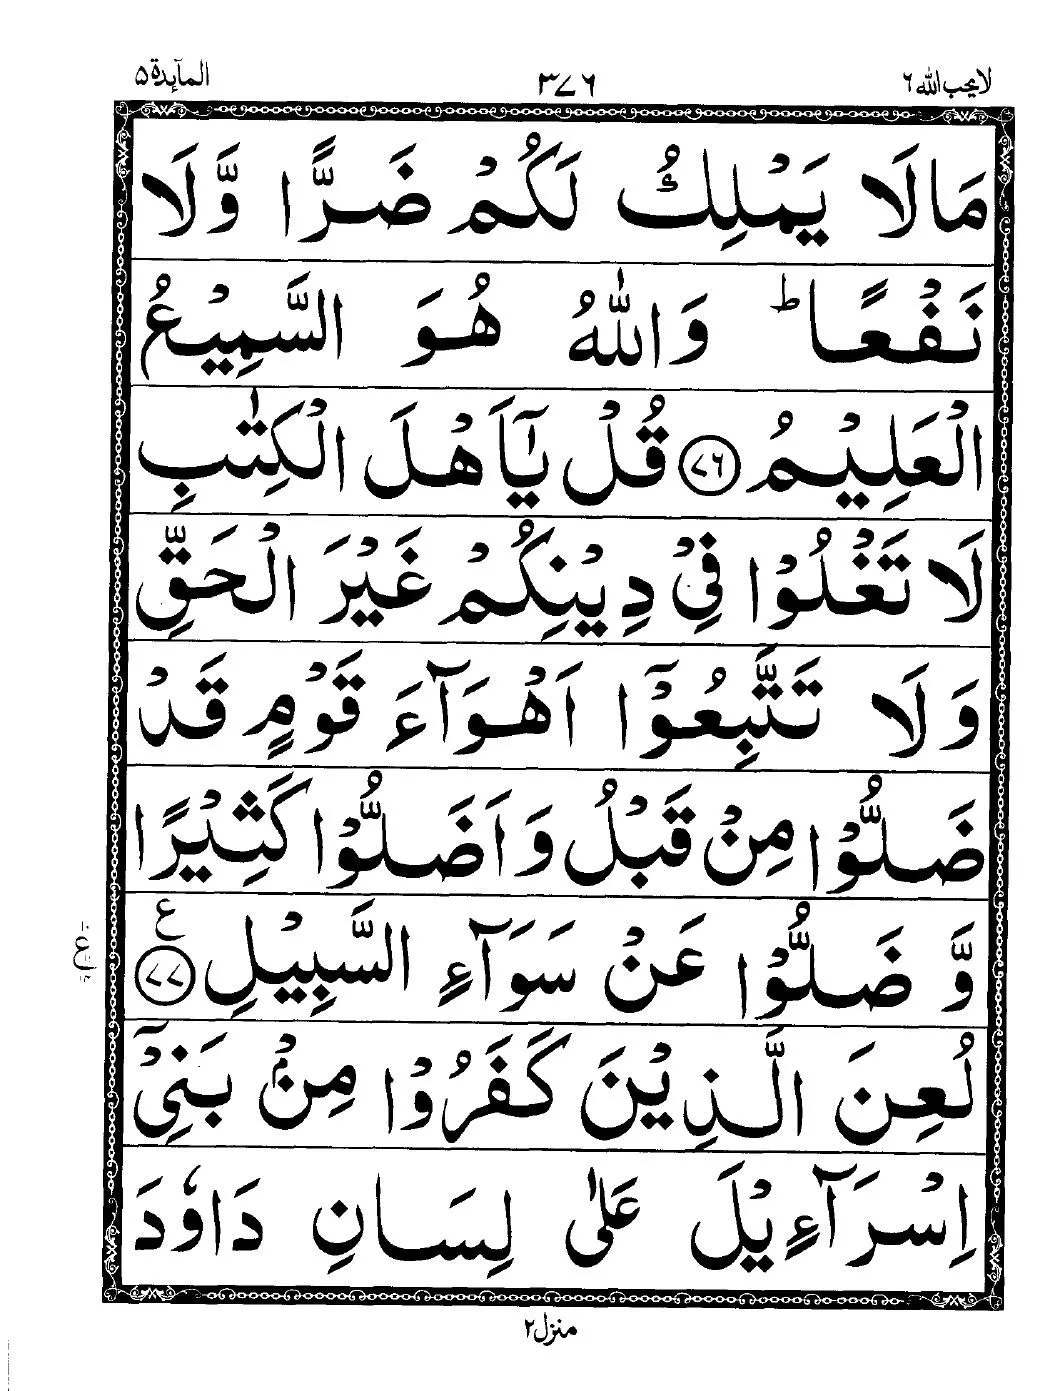 لا يحب الله ٦ ٣٧٦ المآئدة ٥
مَا لَا يَمْلِكُ لَكُمْ ضَرًّا وَّلَا
نَفْعًا ؕ وَاللّٰهُ هُوَ السَّمِيْعُ
الْعَلِيْمُ ۝٧٦ قُلْ يٰۤاَهْلَ الْكِتٰبِ
لَا تَغْلُوْا فِيْ دِيْنِكُمْ غَيْرَ الْحَقِّ
وَلَا تَتَّبِعُوْۤا اَهْوَآءَ قَوْمٍ قَدْ
ضَلُّوْا مِنْ قَبْلُ وَاَضَلُّوْا كَثِيْرًا
وَّ ضَلُّوْا عَنْ سَوَآءِ السَّبِيْلِ ۝٧٧ ع
لُعِنَ الَّذِيْنَ كَفَرُوْا مِنْۢ بَنِيْۤ
اِسْرَآءِيْلَ عَلٰى لِسَانِ دَاوٗدَ
منزل ٢